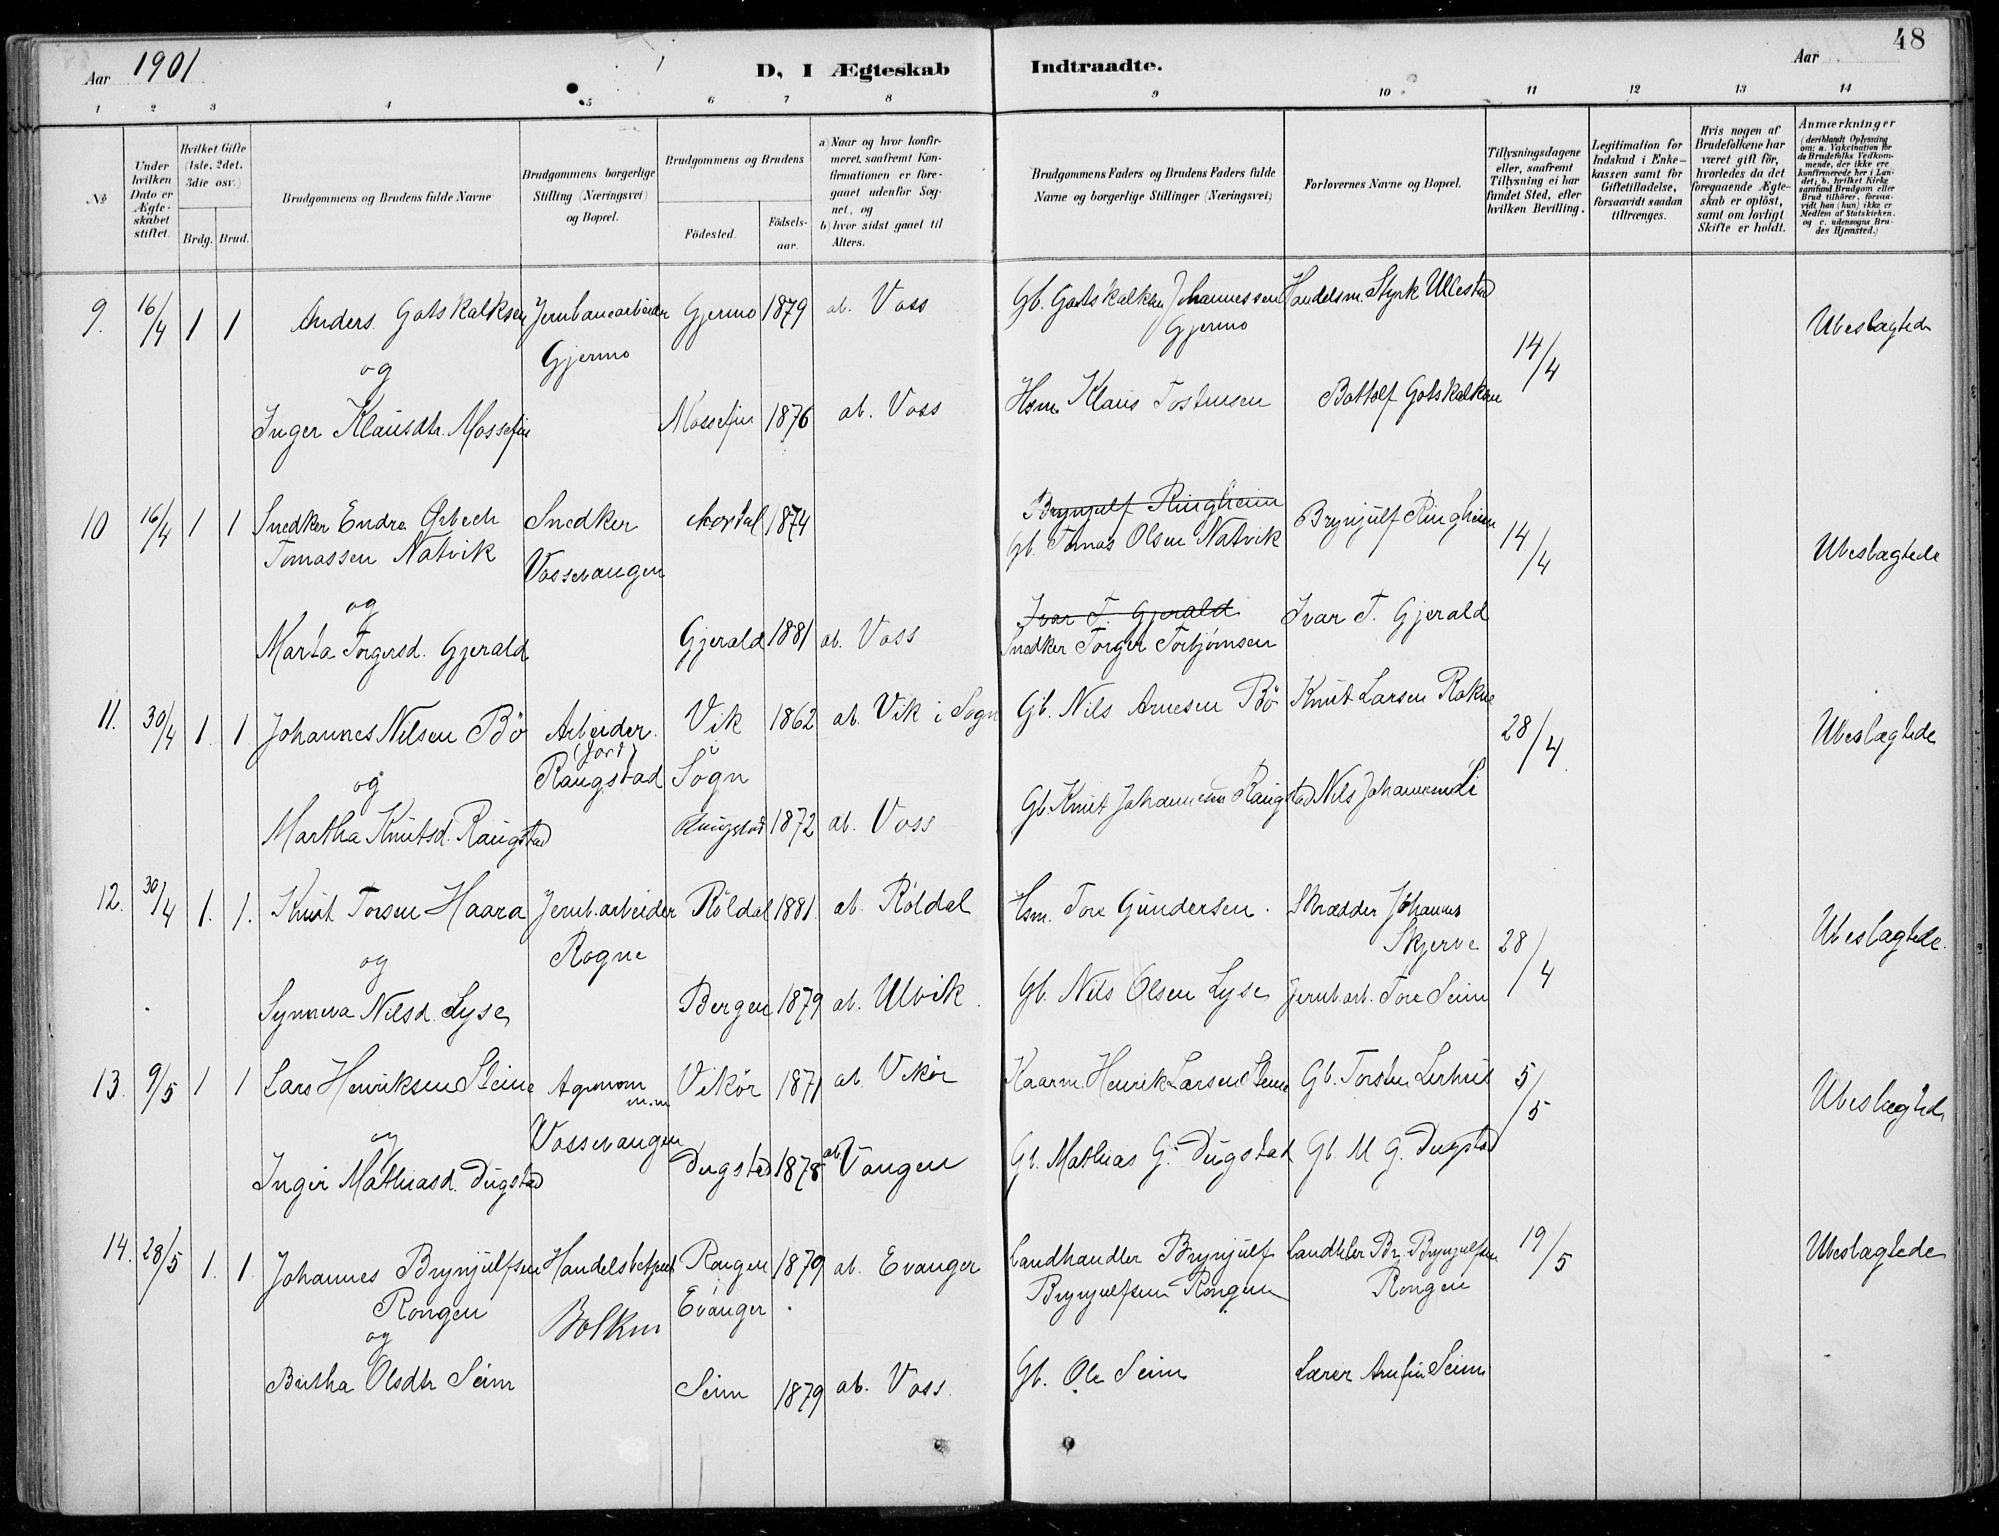 Aar 1901
D, I Ægteskab Indtraadte.
Aar
48
1 2 3 4 5 6 7 8 9 10 11 12 13 14
No
Under hvilken Dato er Ægteskabet stiftet.
Hvilket Gifte (1ste, 2det, 3die osv.)
Brdg. Brud.
Brudgommens og Brudens fulde Navne
Brudgommens borgerlige Stilling (Næringsvei) og Bopæl.
Brudgommens og Brudens
Födested.
Födselsaar.
a) Naar og hvor konfirmeret, saafremt Konfirmationen er foregaaet udenfor Sognet, og
b) hvor sidst gaaet til Alters.
Brudgommens Faders og Brudens Faders fulde Navne og borgerlige Stillinger (Næringsvei)
Forlovernes Navne og Bopæl.
Tillysningsdagene eller, saafremt Tillysning ei har fundet Sted, efter hvilken Bevilling.
Legitimation for Indskud i Enkekassen samt for Giftetilladelse, forsaavidt saadan tiltrænges.
Hvis nogen af Brudefolkene har været gift för, hvorledes da det foregaaende Ægteskab er oplöst, samt om lovligt Skifte er holdt.
Anmærkninger (deriblandt Oplysning om: a. Vakcination for de Brudefolks Vedkommende, der ikke ere konfirmerede her i Landet; b. hvilket Kirkesamfund Brudgom eller Brud tilhörer, forsaavidt han (hun) ikke er Medlem af Statskirken, og c. udensogns Brudes Hjemsted.)
9. 16/4 1 1 Anders Gotskalksen Jernbanearbeider Gjermo 1879 ab. Voss Gb. Gotskalken Johannessen Handelsm. Styrk Ullestad
Gjermo Gjermo 14/4 Ubeslægtede
og
Inger Klausdtr. Mossefin Mossefin 1876 ab. Voss Hsm Klaus Tostensen Bottolf Gotskalksen
10 16/4 1 1 Snedker Endre Snedker 1874 Brynjulf Ringheim Brynjulf Ringheim
Tomassen Natvik Vossevangen Gb. Tomas Olsen Natvik 14/4 Ubeslægtede
og Ivar T. Gjerald Ivar T. Gjerald
Marta Torgersd. Gjerald Gjerald 1881 ab. Voss Snedker Torger Torbjørnsen
11. 30/4 1. 1. Johannes Nilsen Bö Arbeider Vik 1862 ab. Vik i Sogn Gb. Nils Arnesen Bö Knut Larsen Rokne
(Jord)
og Raugstad Sogn 28/4 Ubeslægtede
Gb. Knut Johannesen Raugstad Nils Johannesen Li
Martha Knutsd. Raugstad Raugstad 1872 ab. Voss
12. 30/4 1. 1. Knut Torsen Haara Jernb.arbeider Röldal 1881. ab. Röldal Hsm. Tore Gundersen. Skrædder Johannes
og Rogne Skjerve 28/4 Ubeslægtede.
Synneva Nilsd. Lyse Bergen 1879 ab. Ulvik. Gb. Nils Olsen Lyse Jernb.arb. Tore Seim
13. 9/5 1 1 Lars Henriksen Steine Agronom m.m Vikör 1871 ab. Vikör Kaarm. Henrik Larsen Steine Gb. Torsten Lirhus 5/5 Ubeslægtede
og Vossevangen
Inger Mathiasd. Dugstad Dugstad 1878 ab. Vangen Gb. Mathias G. Dugstad Gb. M G. Dugstad
14. 28/5 1. 1. Johannes Brynjulfsen Handelsbetjent Rongen 1879 ab. Evanger Landhandler Brynjulf Landhdler Br. Brynjulfsen 19/5 Ubeslægtede
Rongen Bolken Evanger Brynjulfsen Rongen Rongen
og
Birtha Olsdtr Seim Seim 1879 ab. Voss. Gb. Ole Seim Lærer Arnfin Seim